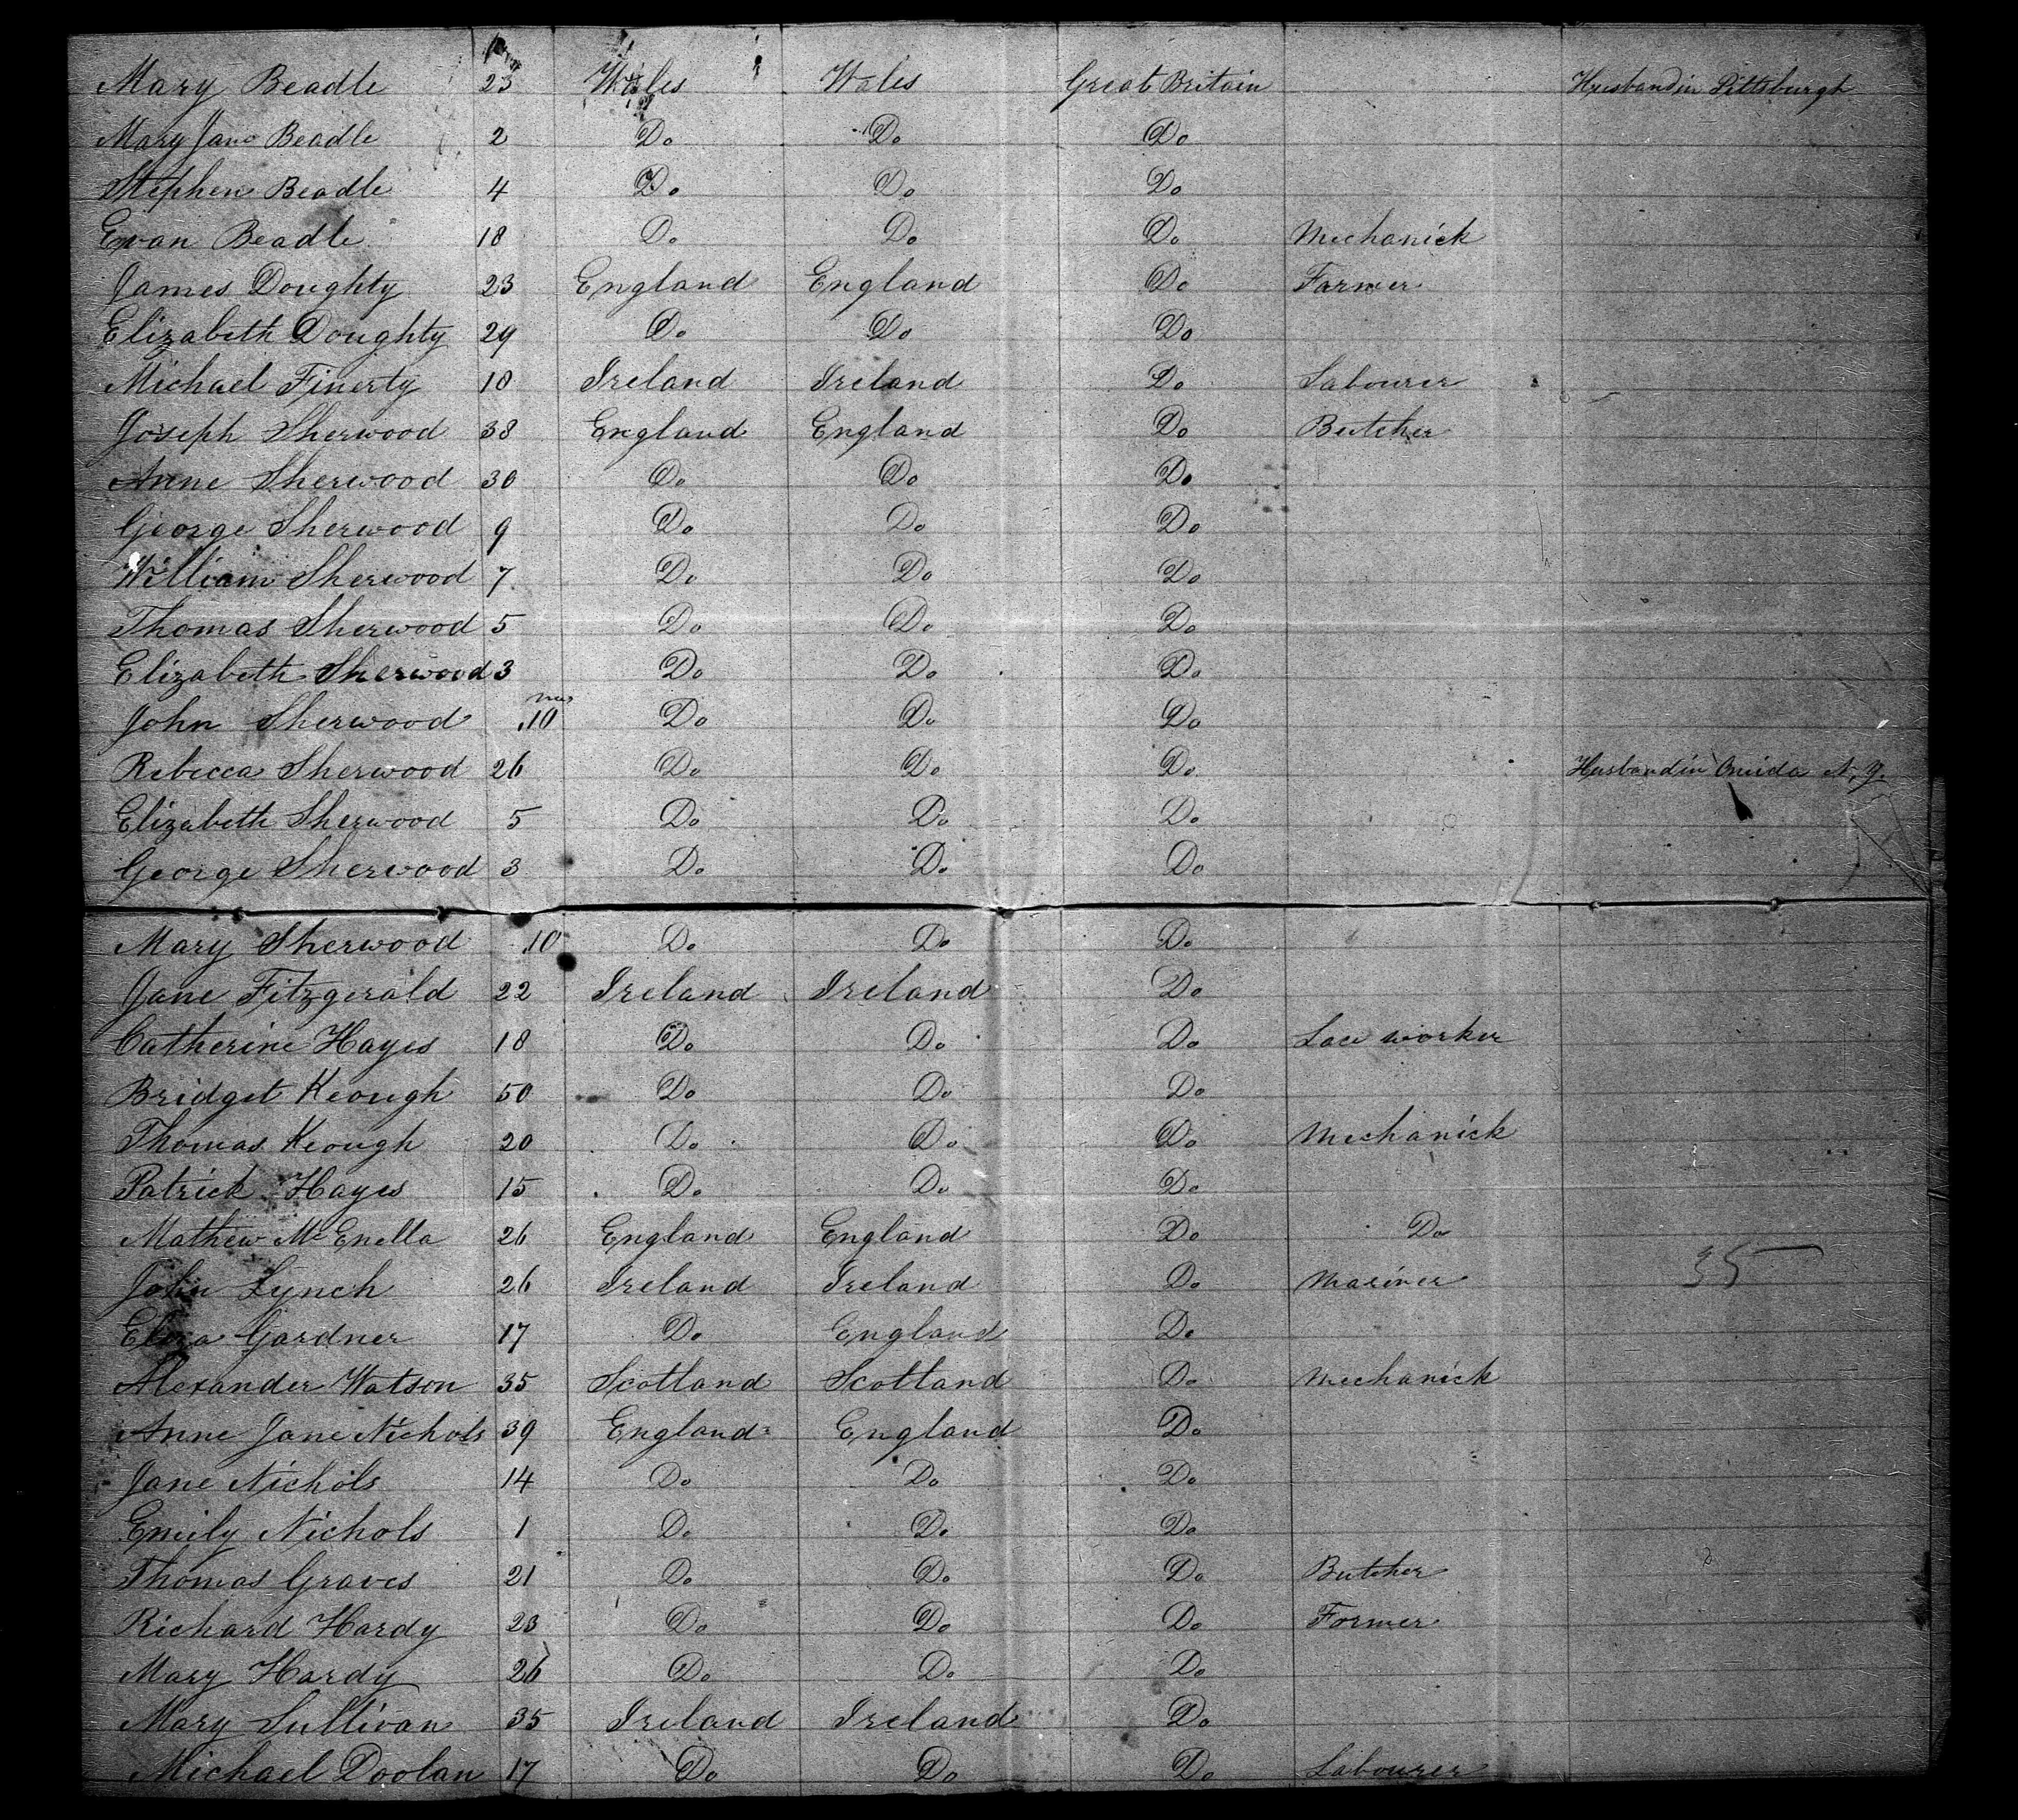 Mary Beadle 23 Wales Wales Great Britain Husband in Pittsburgh
Mary Jane Beadle 2 Do Do Do
Stephen Beadle 4 Do Do Do
Evan Beadle 18 Do Do Do Mechanick
James Doughty 23 England England Do Farmer
Elizabeth Doughty 24 Do Do Do
Michael Finerty 18 Ireland Ireland Do Labourer
Joseph Sherwood 38 England England Do Butcher
Anne Sherwood 30 Do Do Do
George Sherwood 9 Do Do Do
William Sherwood 7 Do Do Do
Thomas Sherwood 5 Do Do Do
Elizabeth Sherwood 3 Do Do Do
John Sherwood 10 Do Do Do
Rebecca Sherwood 26 Do Do Do Husband in Oneida N.Y.
Elizabeth Sherwood 5 Do Do Do
George Sherwood 3 Do Do Do
Mary Sherwood 10 Do Do Do
Jane Fitzgerald 22 Ireland Ireland Do
Catherine Hayes 18 Do Do Do Lace worker
Bridget Keough 50 Do Do Do
Thomas Keough 20 Do Do Do Mechanick
Patrick Hayes 15 Do Do Do
Mathew McEnella 26 England England Do Do
John Lynch 26 Ireland Ireland Do Mariner 35
Eliza Gardner 17 Do England Do
Alexander Watson 35 Scotland Scotland Do Mechanick
Anne Jane Nichols 39 England England Do
Jane Nichols 14 Do Do Do
Emily Nichols 1 Do Do Do
Thomas Graves 21 Do Do Do Butcher
Richard Hardy 23 Do Do Do Farmer
Mary Hardy 26 Do Do Do
Mary Sullivan 35 Ireland Ireland Do
Michael Doolan 17 Do Do Do Labourer